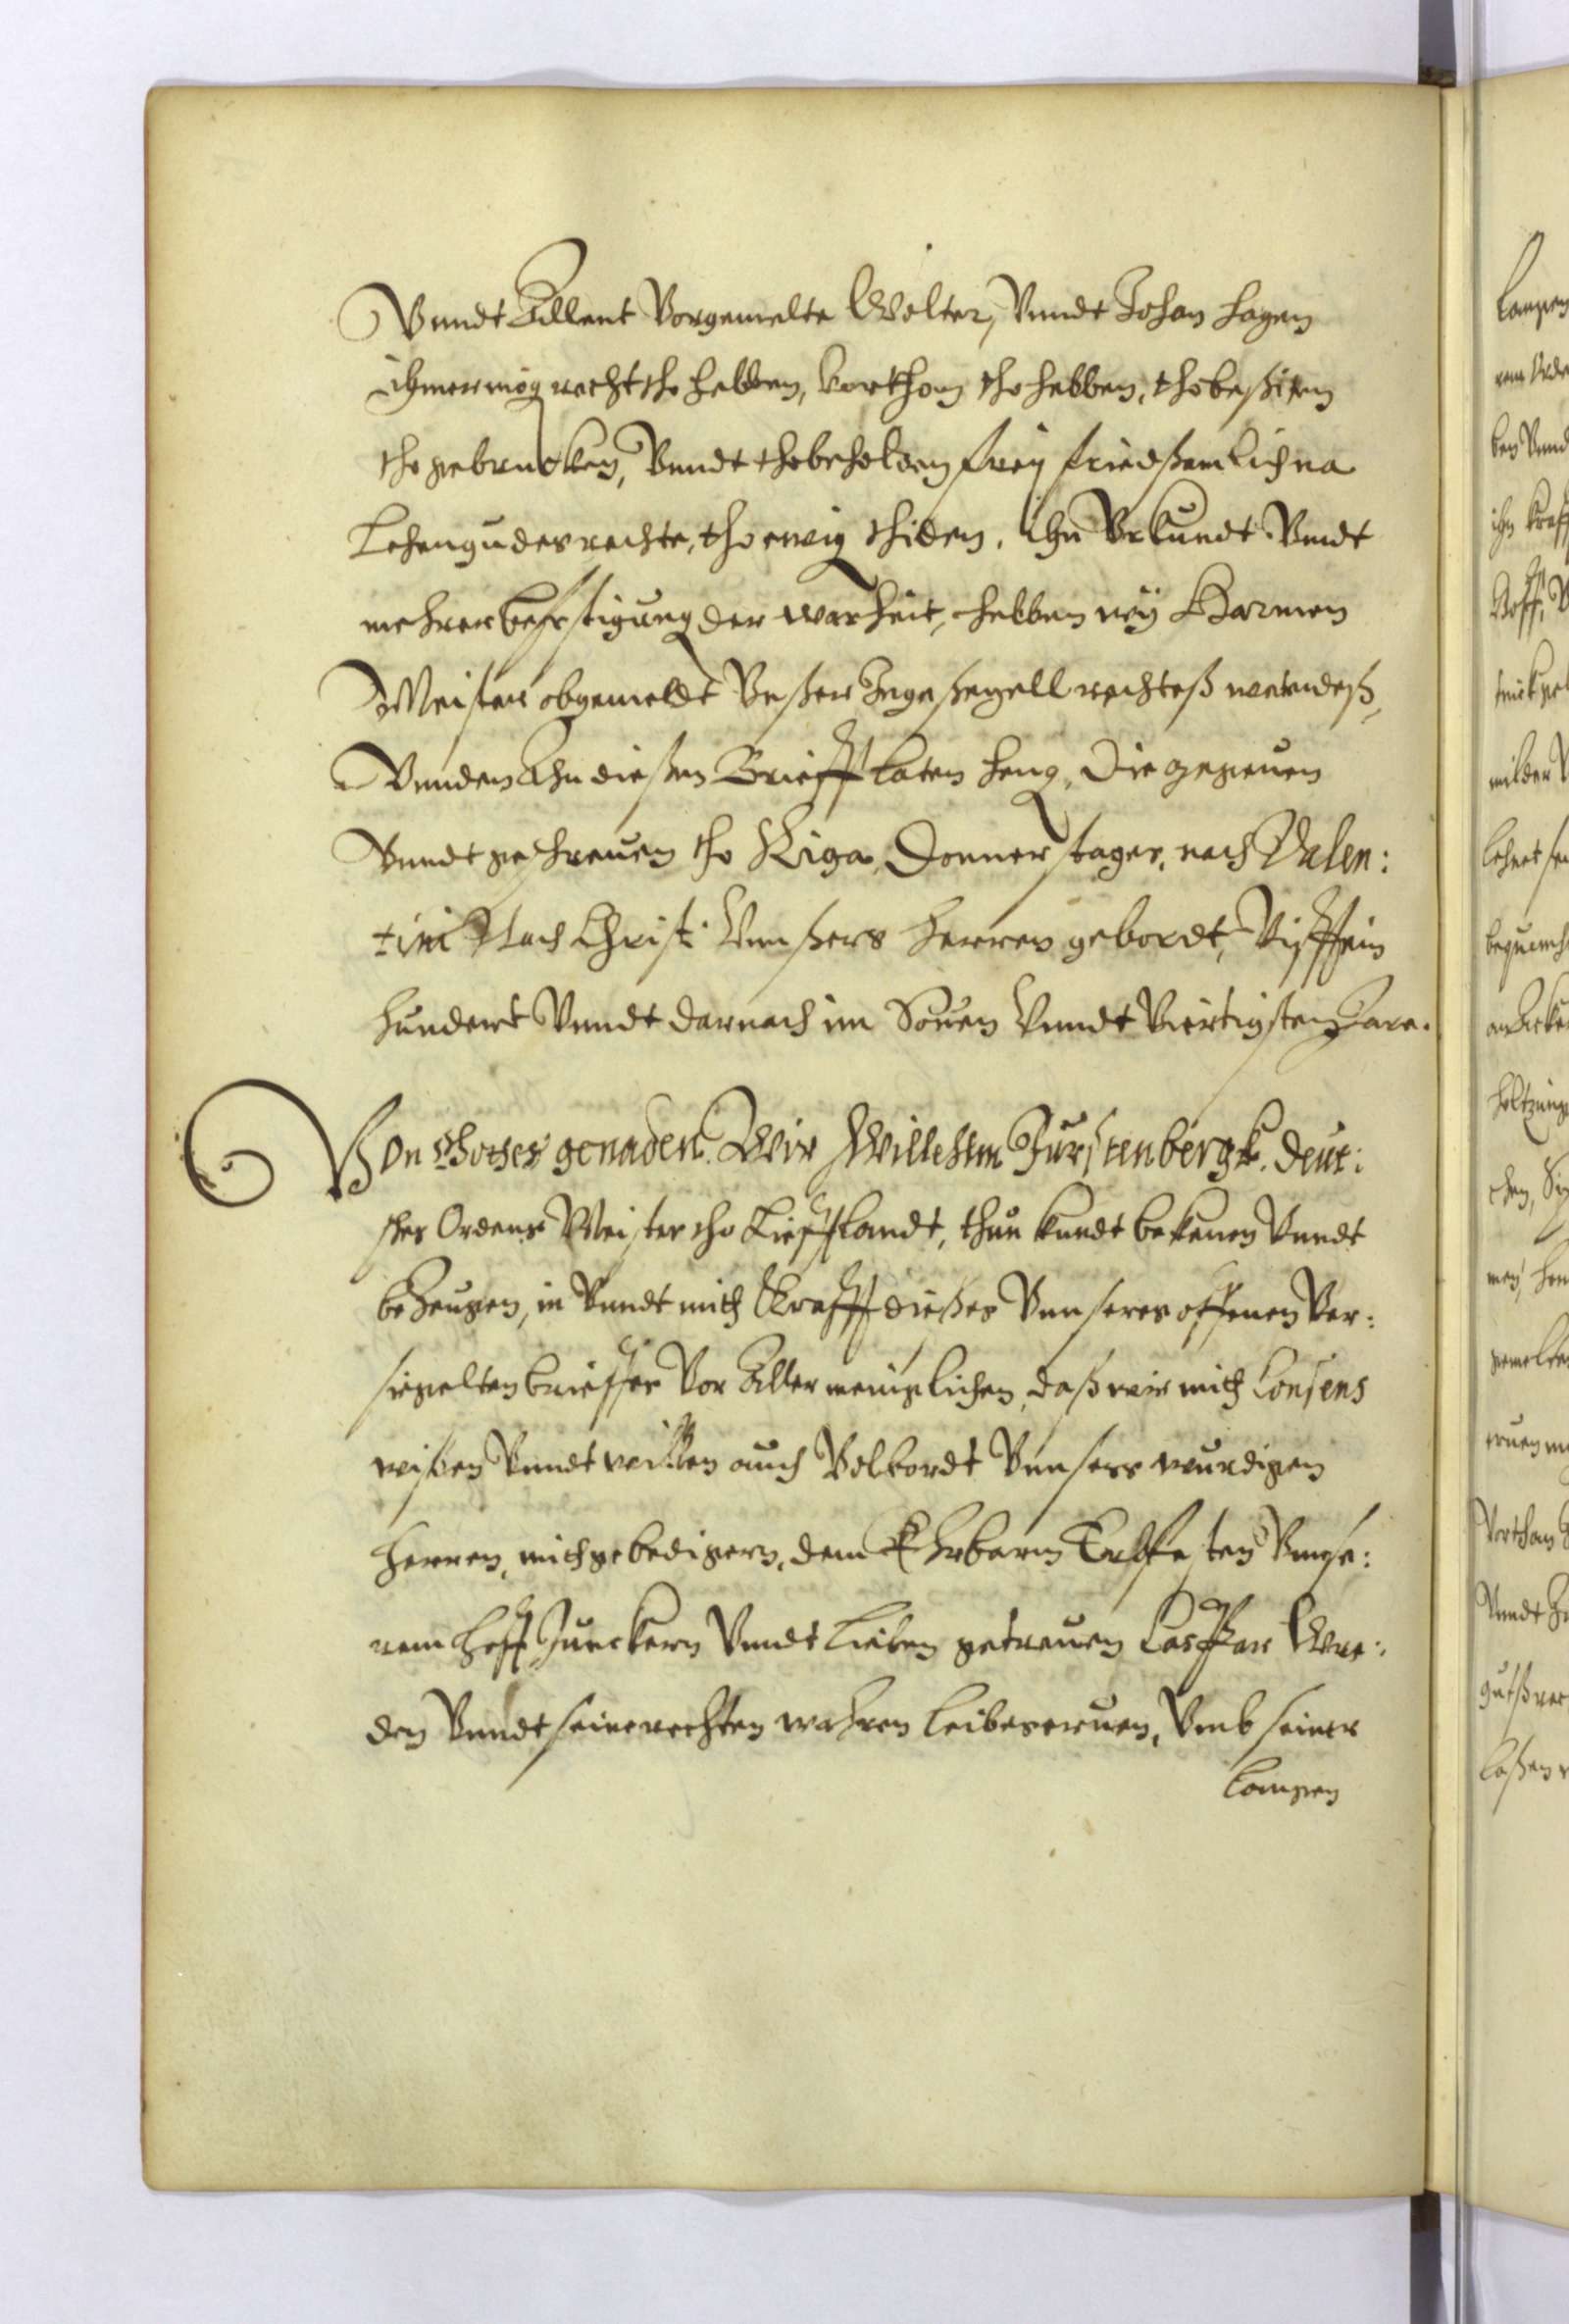 Vnndt Allent Vorgemelte Wolter, Vnndt Johan Hagen
Ihmermög recht tho hebben, Vorthom tho hebben, tho beßitten
tho gebrucken, Vnndt tho beholden frey friedßamlich na
Lehengudes rechte, tho ewig thiden. Ihn Vrkundt Vnndt
mehrer befestigung der warheit, hebben wÿ Harmen
Meister obgemeldt Vnßer Ingeßegell rechteß wetendeß,
Vnnden Ahn dießem Brieff laten heng, Die gegeuen
Vnndt geschreuen tho Riga, Donnerstages, nach Valen:
tini Nach Christi Vnnßers Herren gebordt, Viffein
hundert Vnndt darnach im Souen Vnndt Viertigsten Jare.
Von Gottes genaden. Wir Willehlm Fürstenbergk. deut:
sches Ordens Meister tho Liefflandt, thun kundt bekenen Vnndt
beZeugen, in Vnndt mith Krafft dießes Vnnseres offenen Ver:
siegelten brieffes Vor Aller menniglichen, daß wir mith Consens
wißen Vnndt willen auch Volbordt Vnnsers wurdigen
Herren, mithgebedigern, dem Ehrbarn Erffesten Vnnse:
rem Hoff Junckern Vnndt Lieben getreuen Casper Wre:
den Vnndt seine rechten wahren leibeseruen, Vmb seiner
langen